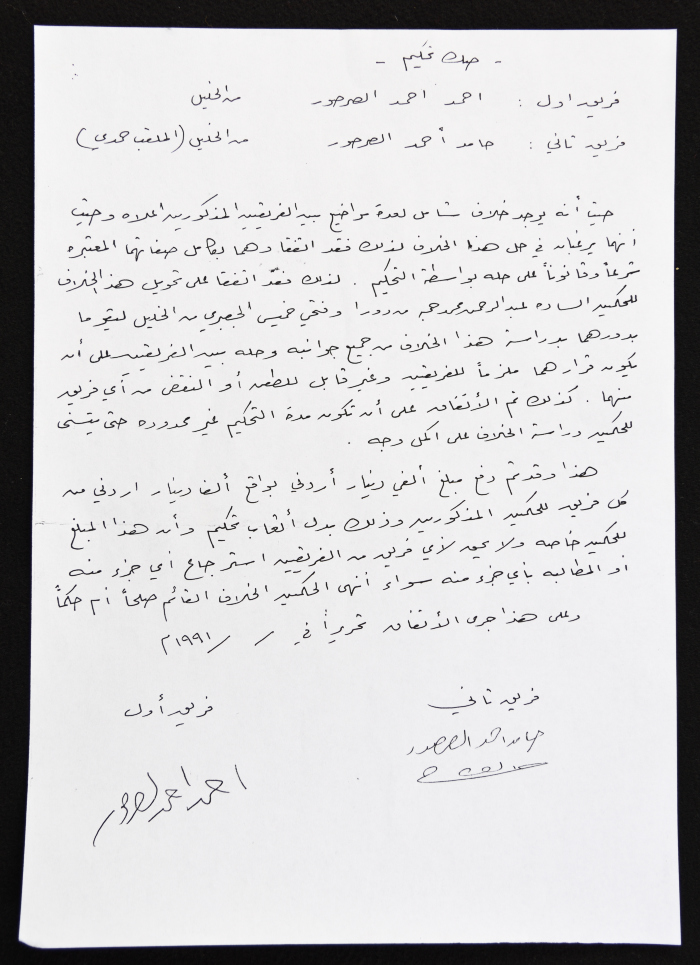 - صك تحكيم -
فريق اول : احمد احمد الصرصور من الخليل
فريق تاني : حامد أحمد الصرصور من الخليل (الملقب حمدي)
حيث أنه يوجد خلاف شامل لعدة مواضيع بين الفريقين المذكورين اعلاه وحيث
انهما يرغبان في حل هذا الخلاف لذلك فقد اتفقا وهما بكامل صفاتهما المعتبره
شرعاً وقانوناً على حله بواسطة التحكيم . لذلك فقد اتفقا على تحويل هذا الخلاف
للحكمين الساده عبد الرحمن محمد حجه من دورا و فتحي خميس الجعبري من الخليل ليقوما
بدورهما بدراسة هذا الخلاف من جميع جوانبه وحله بين الفريقين على أن
يكون قرارهما ملزماً للفريقين وغير قابل للطعن أو النقض من أي فريق
منهما . كذلك تم الأتفاق على أن تكون مدة التحكيم غير محدوده حتى يتسنى
للحكمين دراسة الخلاف على اكمل وجه .
هذا وقد تم دفع مبلغ ألفي دينار أردني بواقع ألف دينار اردني من
كل فريق للحكمين المذكورين وذلك بدل أتعاب تحكيم وأن هذا المبلغ
للحكمين خاصه ولا يحق لأي فريق من الفريقين استرجاع أي جزء منه
أو المطالبه بأي جزء منه سواء أنهى الحكمين الخلاف القائم صلحاً أم حكماً
وعلى هذا جرى الأتفاق تحريراً في / / ١٩٩١م
فريق تاني فريق أول
حامد احمد الصرصور
احمد احمد الصرصور